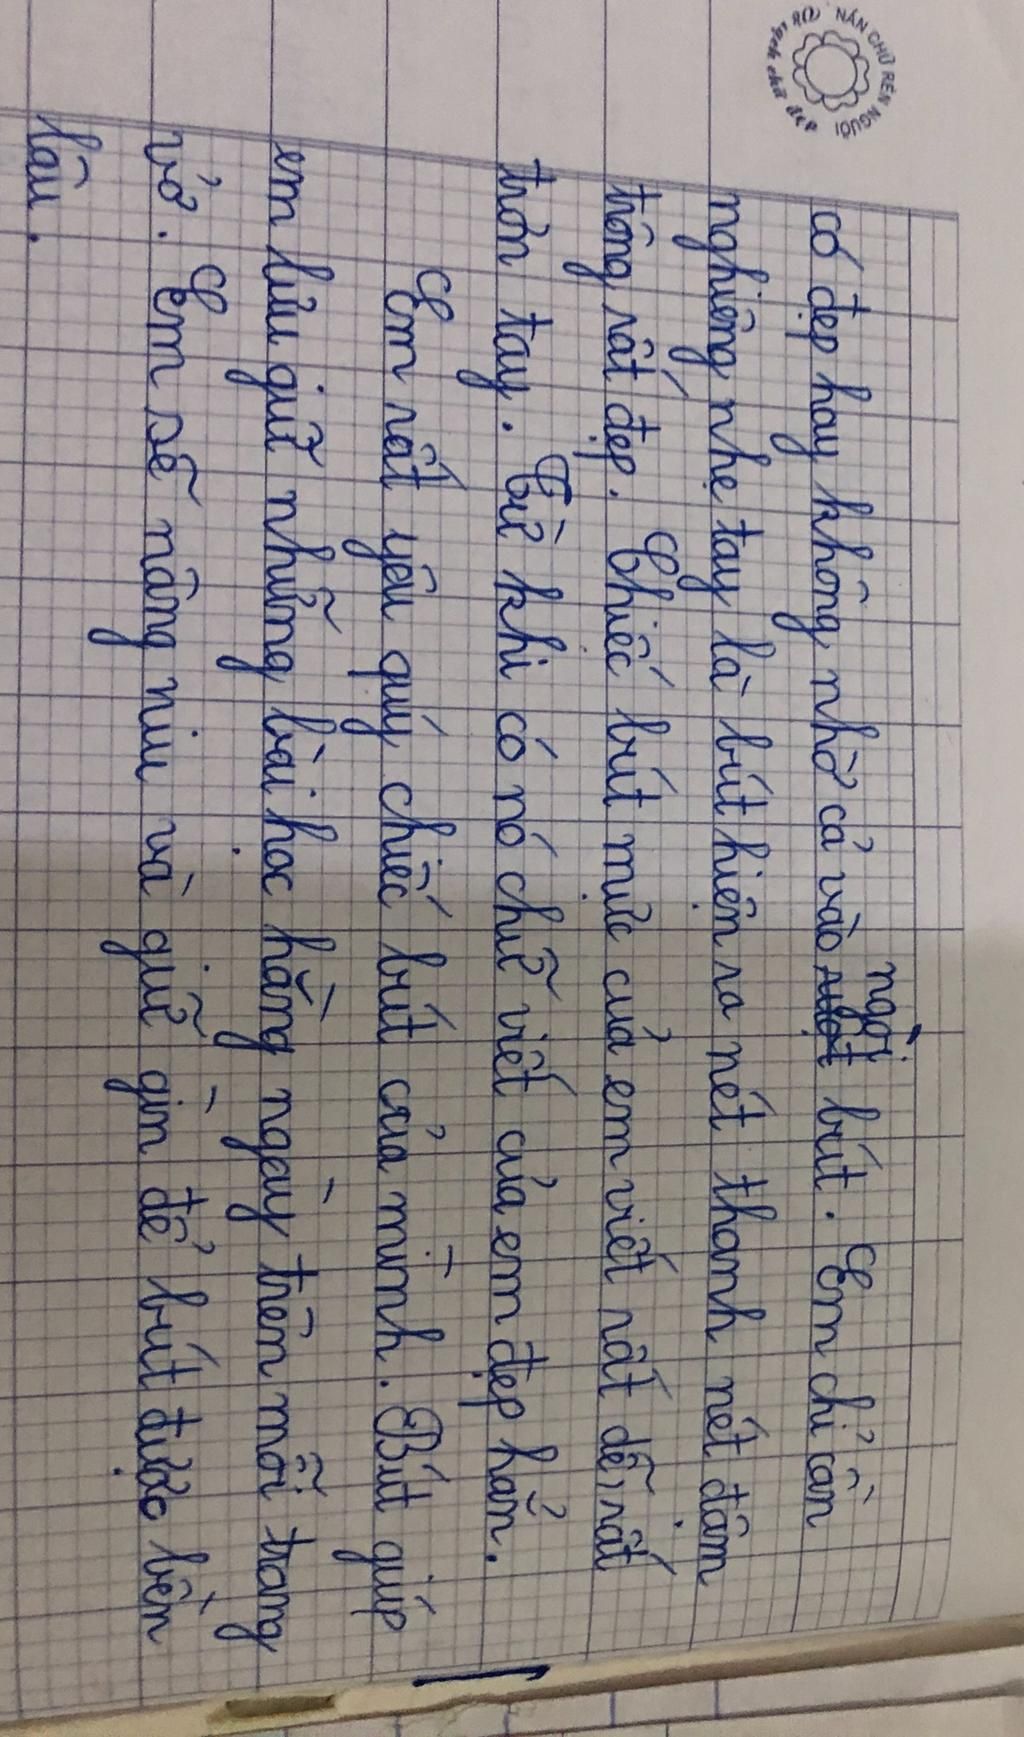 NẮN CHỮ RÈN NGƯỜI
luyện chữ đẹp
có đẹp hay không nhờ cả vào ngòi bút. Em chỉ cần
nghiêng nhẹ tay là bút hiện ra nét thanh nét đậm
trông rất đẹp. Chiếc bút mực của em viết rất dễ, rất
trơn tay. Từ khi có nó chữ viết của em đẹp hẳn.
Em rất yêu quý chiếc bút của mình. Bút giúp
em lưu giữ những bài học hằng ngày trên mỗi trang
vở. Em sẽ nâng niu và giữ gìn để bút được bền
lâu.